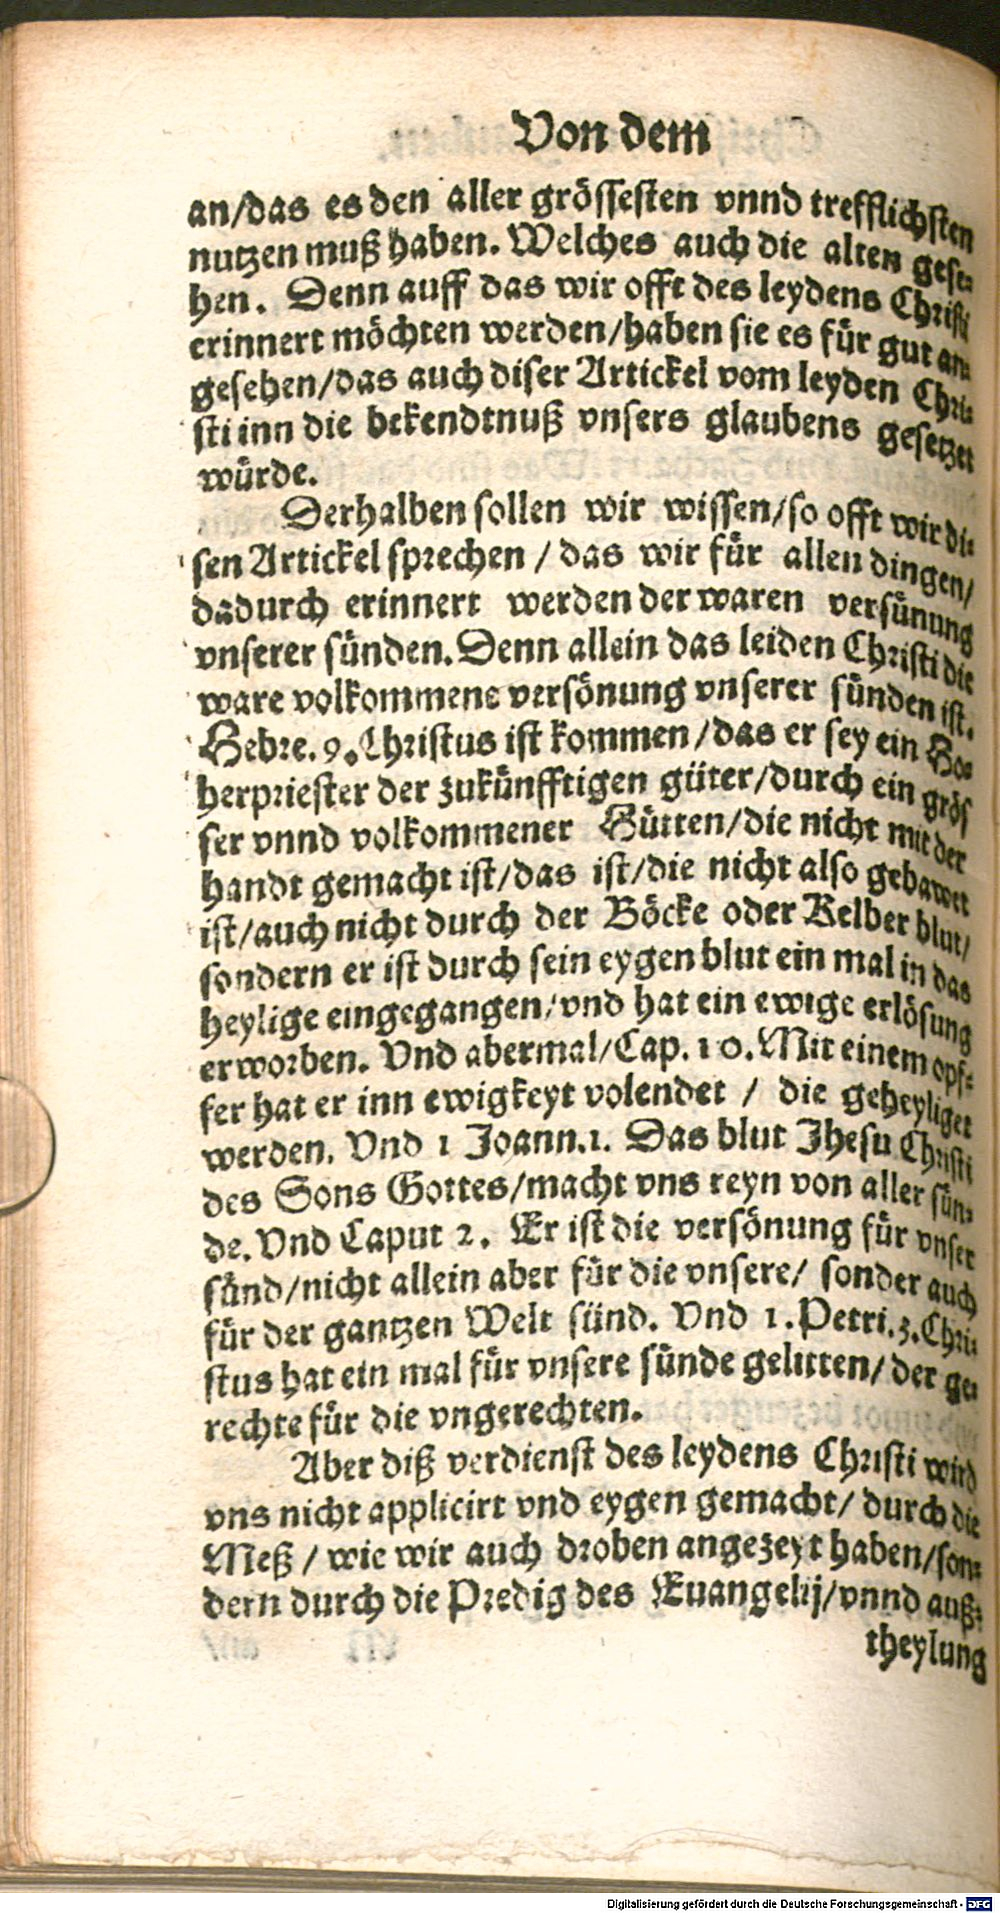 Von dem
an/das es den aller grössesten vnnd trefflichsten
nutzen muß haben. Welches auch die alten gese-
hen. Denn auff das wir offt des leydens Christi
erinnert möchten werden/haben sie es für gut an-
gesehen/das auch diser Artickel vom leyden Chri-
sti inn die bekendtnuß vnsers glaubens gesetzet
würde.
Derhalben sollen wir wissen/so offt wir di-
sen Artickel sprechen / das wir für allen dingen/
dadurch erinnert werden der waren versünung
vnserer sünden. Denn allein das leiden Christi die
ware volkommene versönung vnserer sünden ist.
Hebre. 9. Christus ist kommen/das er sey ein Ho-
herpriester der zukünfftigen güter/durch ein grös
ser vnnd volkommener Hütten/die nicht mit der
handt gemacht ist/das ist/die nicht also gebawet
ist/auch nicht durch der Böcke oder Kelber blut/
sondern er ist durch sein eygen blut ein mal in das
heylige eingegangen/vnd hat ein ewige erlösung
erworben. Vnd abermal/Cap. 10. Mit einem opf-
fer hat er inn ewigkeyt volendet / die geheyliget
werden. Vnd 1 Joann.1. Das blut Jhesu Christi
des Sons Gottes/macht vns reyn von aller sün-
de. Vnd Caput 2. Er ist die versönung für vnser
sünd/nicht allein aber für die vnsere/ sonder auch
für der gantzen Welt sünd. Vnd 1. Petri. 3. Chri-
stus hat ein mal für vnsere sünde gelitten/ der ge-
rechte für die vngerechten.
Aber diß verdienst des leydens Christi wird
vns nicht applicirt vnd eygen gemacht/ durch die
Meß / wie wir auch droben angezeyt haben/son-
dern durch die Predig des Euangelij/vnnd auß-
theylung
Digitalisierung gefördert durch die Deutsche Forschungsgemeinschaft - DFG